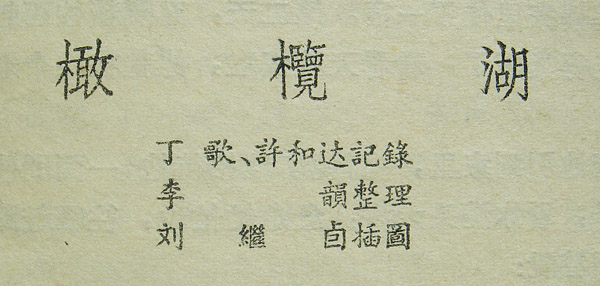 橄欖湖
丁歌、許和达記錄
李韻整理
刘繼卣插圖